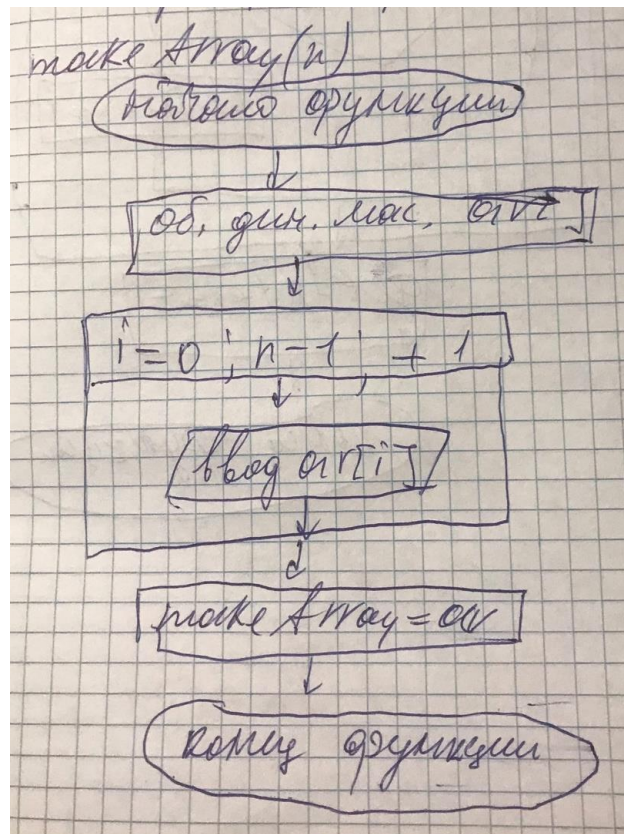 make Array(n)
начало функции
об. дин. мас. arr
i=0; n-1; +1
ввод arr[i]
make Array=arr
конец функции